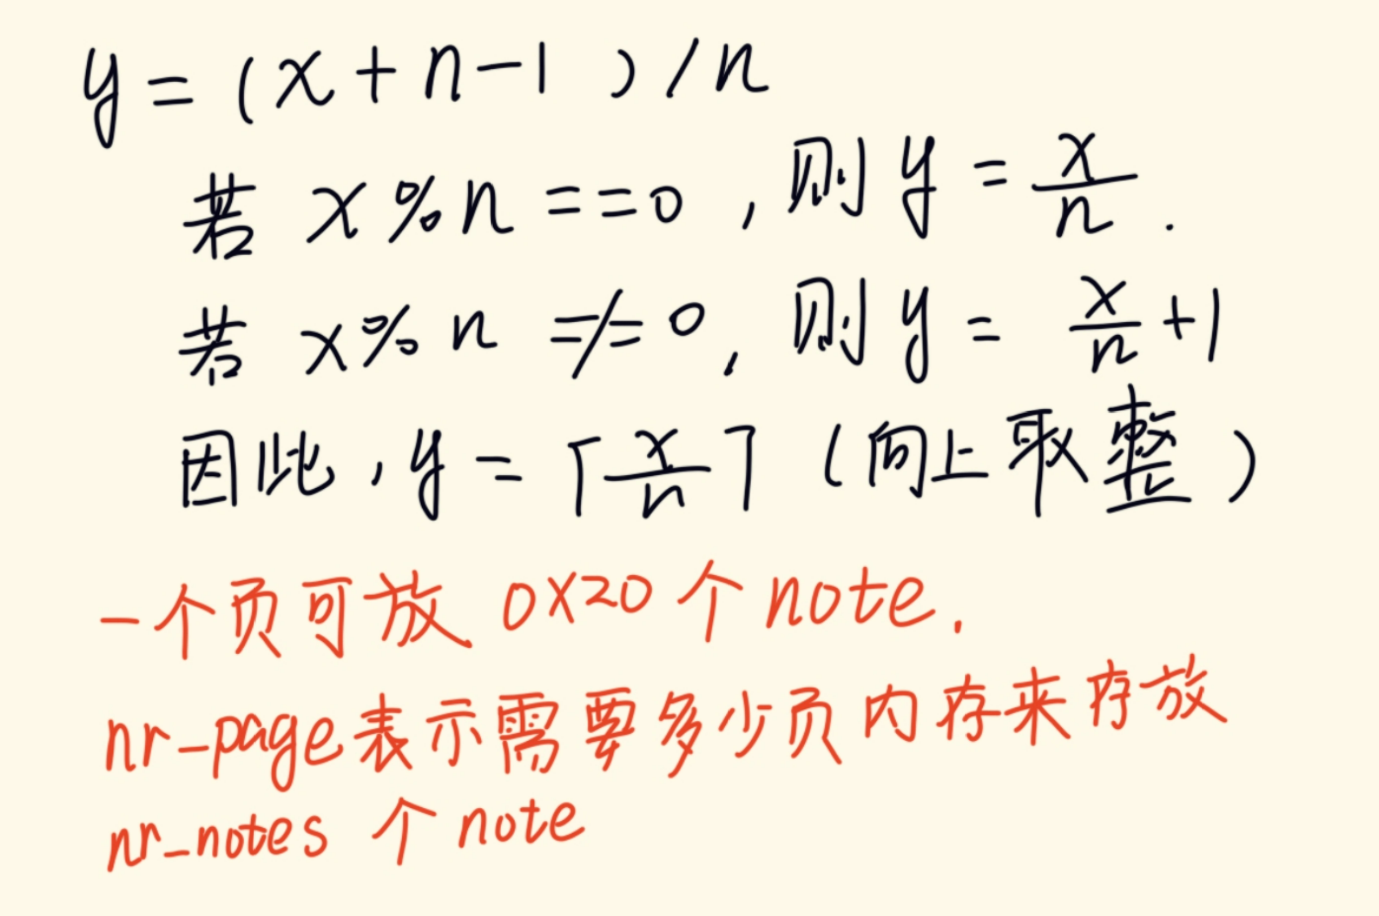 y = (x + n - 1) / n
若 x % n == 0 , 则 y = x/n .
若 x % n =/= 0 , 则 y = x/n + 1
因此 , y = ⌈x/n⌉ (向上取整)
一个页可放 0x20 个 note .
nr_page表示需要多少页内存来存放
nr_notes 个 note